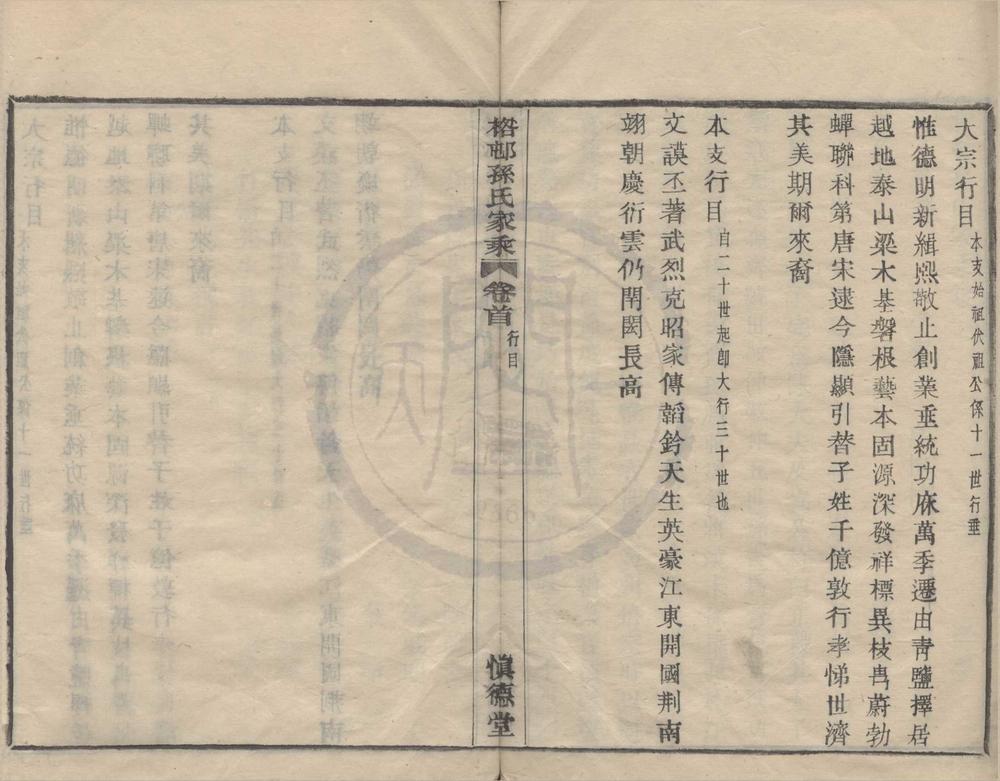 大宗行目 本支始祖伏祖公係十一世行垂
惟德明新緝熙敬止創業垂統功庥萬季遷由靑鹽擇居
越地泰山梁木基磐根藝本固源深發祥標異枝𠱓蔚勃
蟬聯科第唐宋逮今隱顯引替子姓千億敦行孝悌世濟
其美期爾來裔
本支行目 自二十世起卽大行三十世也
文謨丕著武烈克昭家傳韜鈐天生英豪江東開國荆南
翊朝慶衍雲仍閈閎長高
格邨孫氏家乘 卷首 行目 愼德堂